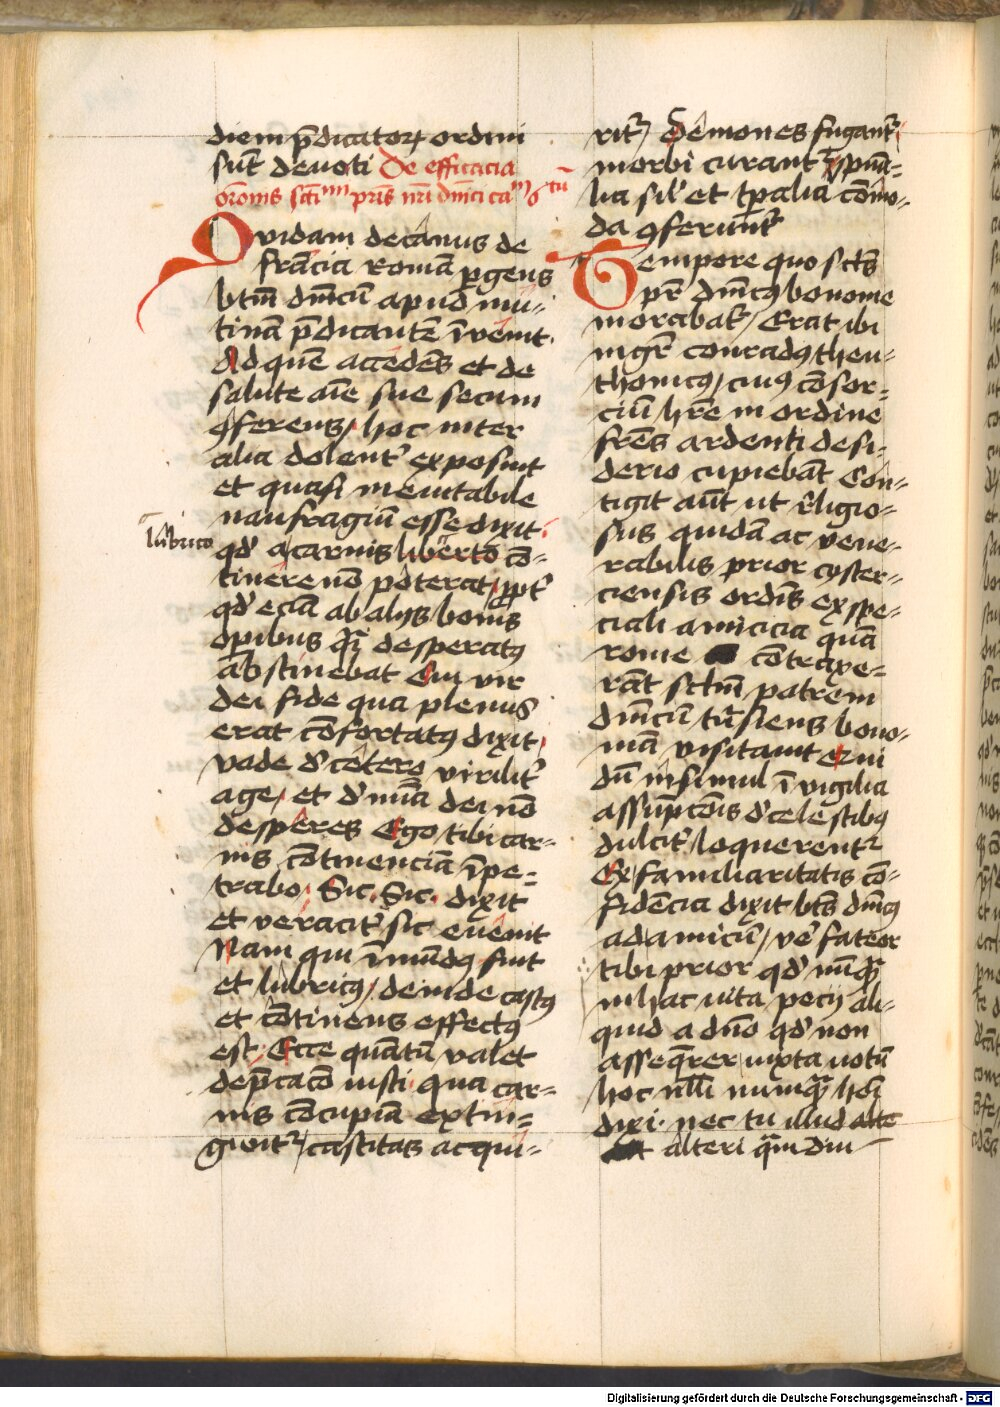 diem p̄dicatoꝝ ordini
sūt deuoti De efficacia
oronis scti pris nri dnici
Quidam decanus de
francia Romā ꝑgens
btm̄ dnīcū apud mu-
tinā p̄dicantē īvenit.
Ad quē accedēs et de
salute aīe sue secum
ꝯferens / hoc inter
alia dolent' exposuit
et quasi ineuitabile
naufragiū esse dixit
lubrico
qd' a carnis libērto cō-
tinere nō poterat, ꝓpt'
qd' eciā ab alijs bonis
opibus desperatꝯ
abstinebat Cui vir
dei fide qua plenus
erat cōfortatus dixit
vade d' cetero virilit'
age / et d' mīa dei nō
desperes Ego tibi car-
nis cōtinenciā īpe-
trabo. Sic. Sic. dixit
et veracit' sic euenit
Nam qui īmūdꝯ fuit
et lubricꝯ / deinde castꝯ
et cōtinens effectꝯ
est. Ecce quātū valet
dep̄cacō iusti qua car-
nis cōcupīa extin-
guitr / castitas acqui-
ritr / Demones fugant'
morbi curant' spūa-
lia sil' et tꝑalia cōmo-
da ꝯferunt'
Tempore quo sctūs
pr̄ dnīcꝯ bononie
morabat' / Erat ibi
mgr̄ conradꝯ theu-
thonicꝯ / cuiꝯ cōsor-
ciū hr̄e in ordine
frēs ardenti desi-
derio cupiebāt Con-
tigit aūt ut religio-
sus quidā ac vene-
rabilis prior cyster-
ciensis ordīs ex spe-
ciali amicicia quā
rome cōtraxe-
rāt sctm̄ patrem
dnīcū trāsiens bono-
niā visitauit cui
dū insimul ī vigilia
assūpcōis d' celestibꝯ
dulcit' loquerentr
Ex familiaritatis cō-
fidēcia dixit bts dnīcꝯ
ad amicū / ve' fateor
tibi prior qd' nūqꝫ
in hac uita pecij ali-
quid a dno qd' non
asseqrer iuxta uotū
hoc nlli numqꝫ hōi
dixi. nec tu illud
alteri qm̄diu
Digitalisierung gefördert durch die Deutsche Forschungsgemeinschaft - DFG